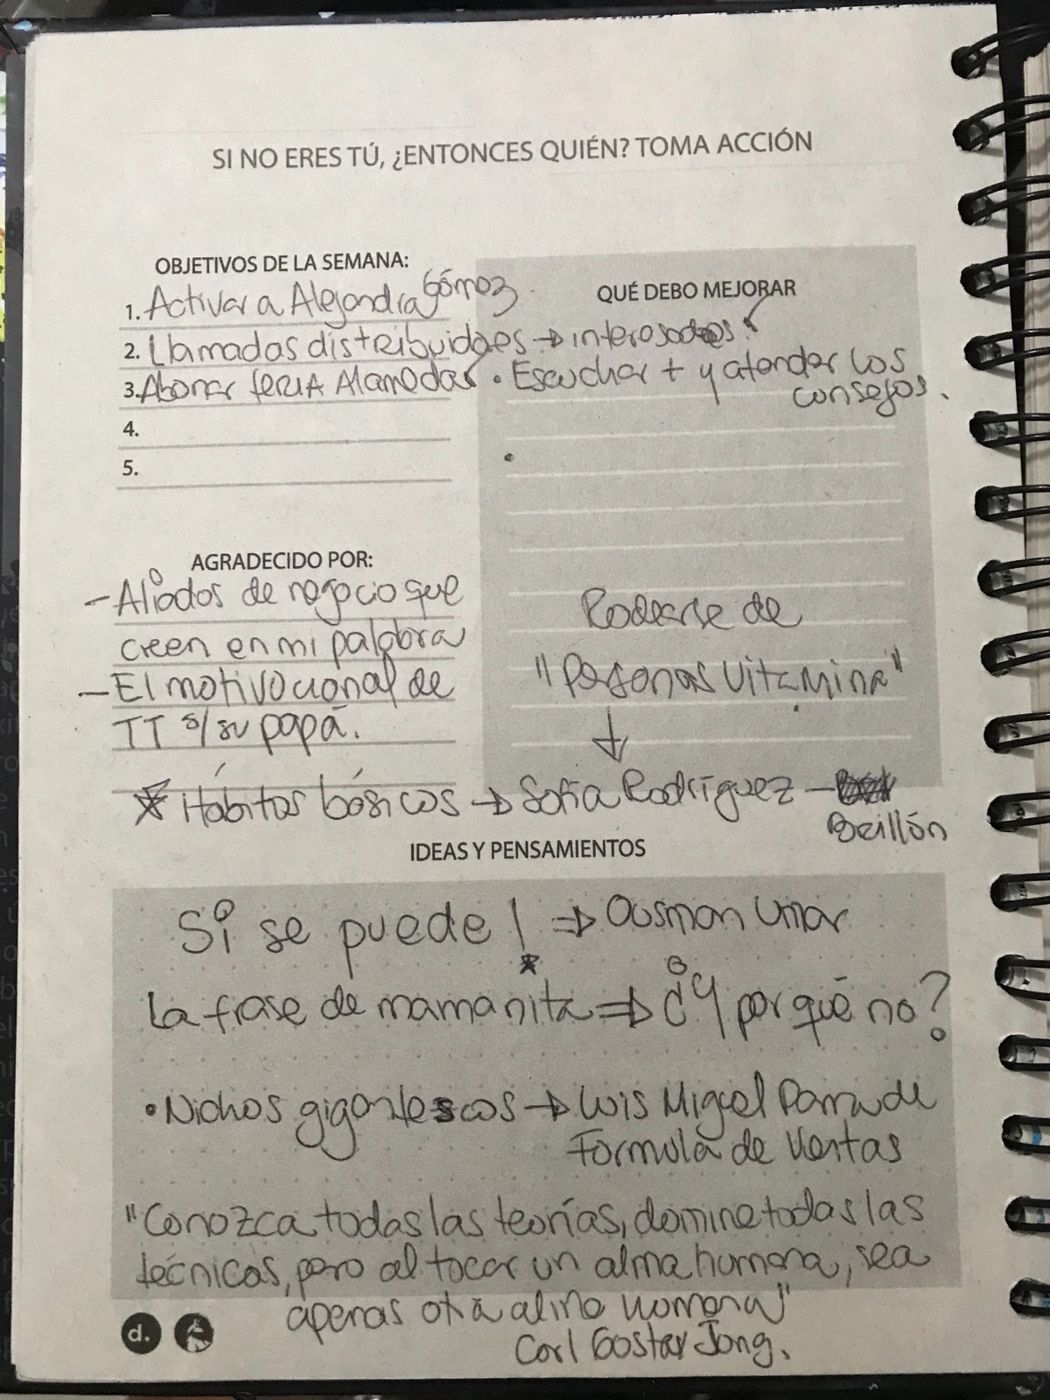 SI NO ERES TÚ, ¿ENTONCES QUIÉN? TOMA ACCIÓN
OBJETIVOS DE LA SEMANA:
1. Activar a Alejandra Gómez
2. Llamadas distribuidoes → interesados
3. Abonar feria Alamedas
4.
5.
QUÉ DEBO MEJORAR
• Escuchar + y atender los
consejos.
•
Rodearse de
"Personas Vitamina"
↓
AGRADECIDO POR:
- Aliados de negocio que
creen en mi palabra
- El motivacional de
TT s/su papá.
* Hábitos básicos → Sofia Rodríguez -
Brillón
IDEAS Y PENSAMIENTOS
Si se puede! ⇒ Ousman Umar
*
La frase de mamanita ⇒ ¿Y por qué no?
• Nichos gigantescos → Luis Miguel Parra de
Formula de Ventas
"Conozca todas las teorías, domine todas las
técnicas, pero al tocar un alma humana, sea
apenas otra alma humana"
Carl Gostav Jong.
d.